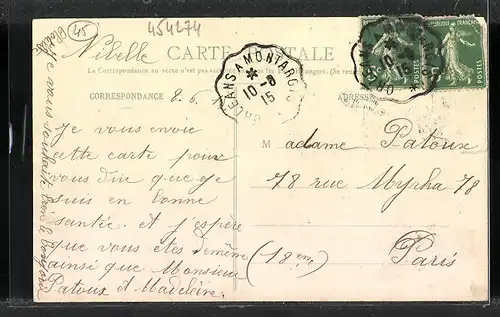 45
454274
Nibelle
CARTE POSTALE
La Correspondance au recto n'est pas
CORRESPONDANCE
ADRESSE
ORLEANS A MONTARGIS
10-6
15
10-6
15
POSTES
POSTES
8.6.15
Je vous envoie
cette carte pour
vous dire que je
suis en bonne
santée. et j'espère
que vous êtes de même
ainsi que Monsieur
Patoux et Madeleine.
Je vous souhaite bien le bonjour
M adame Patoux
78 rue Myrha 78
(18eme)
Paris